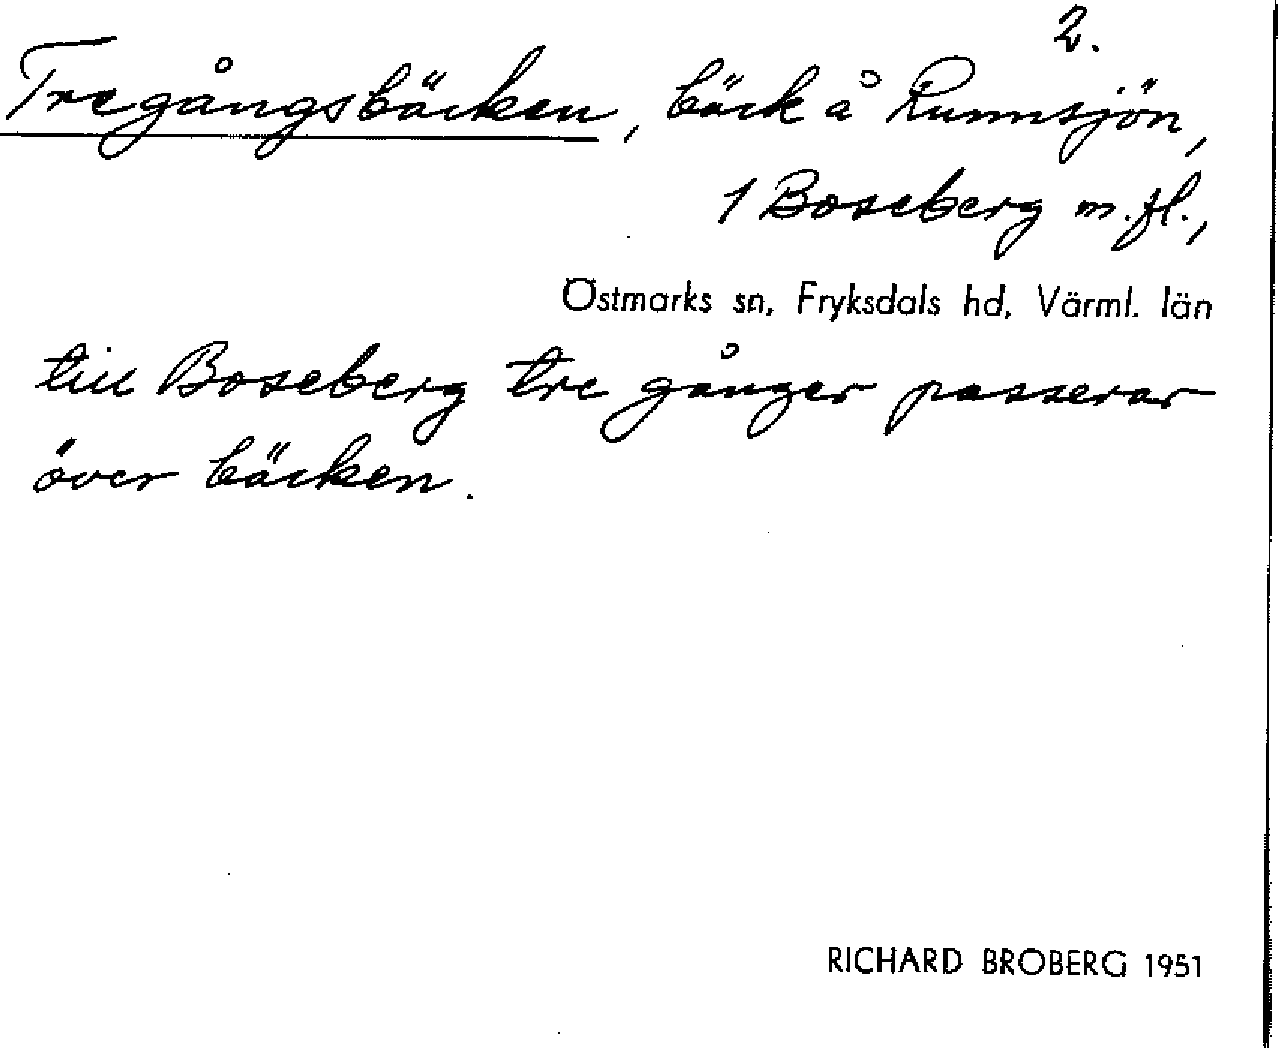 2.
Tregångsbäcken, bäck å Runnsjön,
1 Boseberg m.fl.,
Östmarks sn, Fryksdals hd, Värml. län
till Boseberg tre gånger passerar
över bäcken.
RICHARD BROBERG 1951